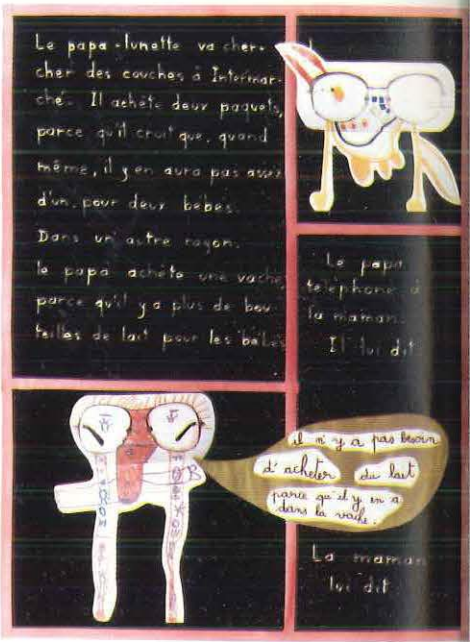 Le papa-lunette va cher-
cher des couches à Intermar-
ché. Il achète deux paquets,
parce qu'il croit que, quand
même, il y en aura pas assez
d'un, pour deux bébés.
Dans un autre rayon,
le papa achète une vache,
parce qu'il y a plus de bou-
teilles de lait pour les bébés
Le papa
téléphone à
la maman.
Il lui dit:
il n'y a pas besoin
d'acheter du lait
parce qu'il y en a
dans la vache.
La maman
lui dit